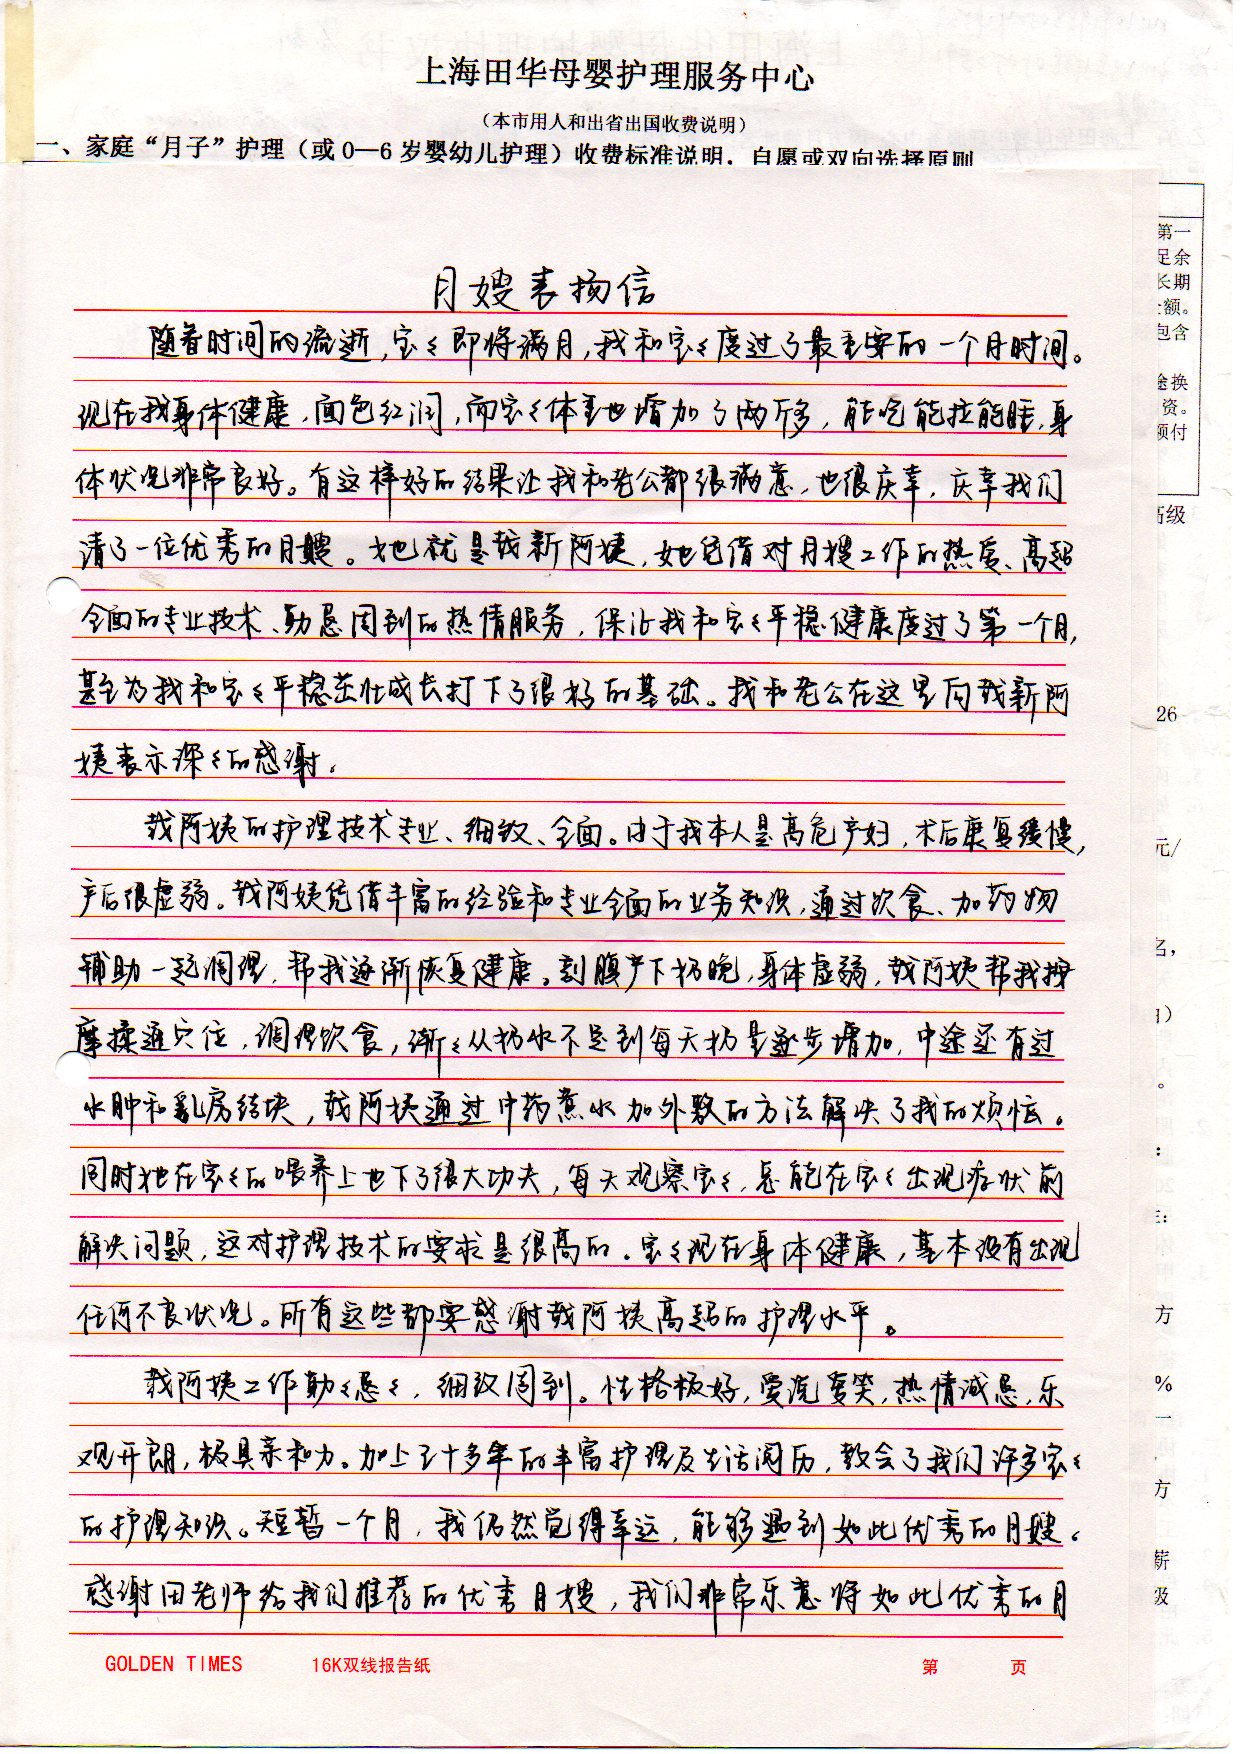 上海田华母婴护理服务中心
（本市用人和出省出国收费说明）
一、家庭“月子”护理（或0—6岁婴幼儿护理）收费标准说明，自愿或双向选择原则
月嫂表扬信
随着时间的流逝，宝々即将满月，我和宝々度过了最重要的一个月时间。
现在我身体健康，面色红润，而宝々体重也增加了两斤多，能吃能拉能睡，身
体状况非常良好。有这样好的结果让我和老公都很满意，也很庆幸，庆幸我们
请了一位优秀的月嫂。她就是钱新阿姨，她凭借对月嫂工作的热爱、高超
全面的专业技术、勤恳周到的热情服务，保证我和宝々平稳健康度过了第一个月，
甚至为我和宝々平稳茁壮成长打下了很好的基础。我和老公在这里向钱新阿
姨表示深々的感谢。
钱阿姨的护理技术专业、细致、全面。由于我本人是高危产妇，术后康复缓慢，
产后很虚弱。钱阿姨凭借丰富的经验和专业全面的业务知识，通过饮食、加药物
辅助一起调理，帮我逐渐恢复健康。剖腹产下奶晚，身体虚弱，钱阿姨帮我按
摩揉通穴位，调理饮食，渐々从奶水不足到每天奶量逐步增加，中途还有过
水肿和乳房结块，钱阿姨通过中药煮水加外敷的方法解决了我的烦恼。
同时她在宝々的喂养上也下了很大功夫，每天观察宝々，总能在宝々出现症状前
解决问题，这对护理技术的要求是很高的。宝々现在身体健康，基本没有出现
任何不良状况。所有这些都要感谢钱阿姨高超的护理水平。
钱阿姨工作勤々恳々，细致周到。性格极好，爱说爱笑，热情诚恳，乐
观开朗，极具亲和力。加上二十多年的丰富护理及生活阅历，教会了我们许多宝々
的护理知识。短暂一个月，我仍然觉得幸运，能够遇到如此优秀的月嫂。
感谢田老师给我们推荐的优秀月嫂，我们非常乐意将如此优秀的月
GOLDEN TIMES 16K双线报告纸 第 页
第一
足余
长期
额。
包含
换
资。
付
高级
26
元/
名，
）
。
：
方
%
一
方
薪
级